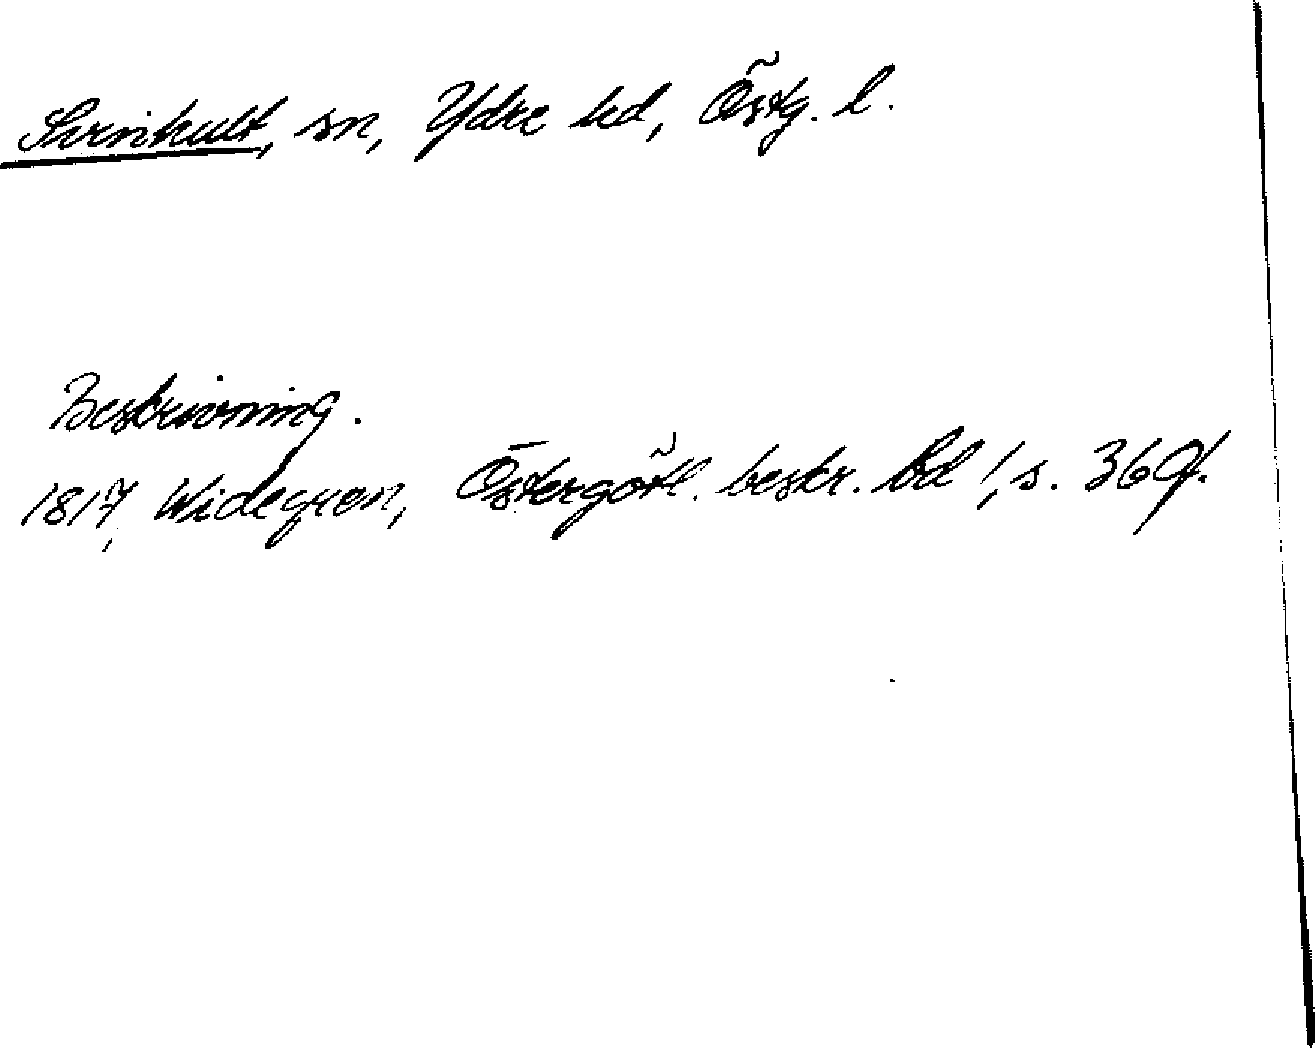 Svinhult, sn, Ydre hd, Östg. l.
Beskrivning.
1817, Widegren, Östergötl. beskr. Bd 1, s. 369f.